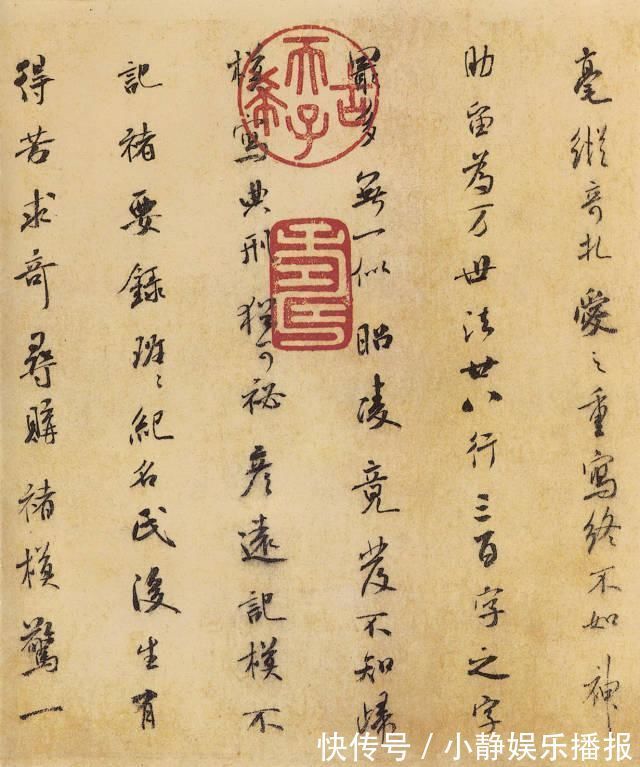 毫縱奇札愛之重寫終不如神
助留為万世法廿八行三百字之字
最多無一似昭陵竟發不知歸
模寫典刑猶可祕彥遠記模不
記褚要錄班〻紀名氏後生有
得苦求奇尋購褚模驚一
古希天子
壽
快传号 / 小静娱乐播报